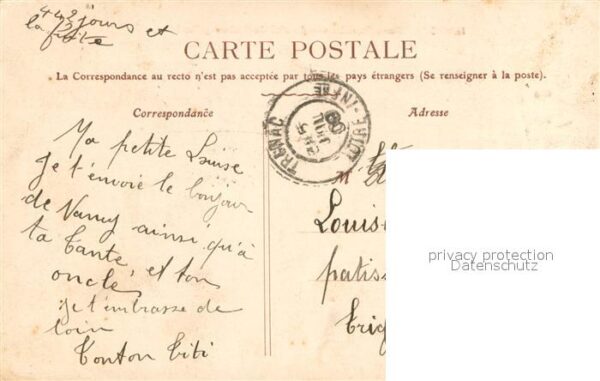 jours et
la
CARTE POSTALE
La Correspondance au recto n'est pas acceptée par tous les pays étrangers (Se renseigner à la poste).
Correspondance
Adresse
TRIGNAC
LOIRE-INFRE
Ma petite Louise
Je t'envoie le bonjour
de Nancy ainsi qu'à
ta tante, et ton
oncle
je t'embrasse de
loin
Tonton Titi
Louis
patiss
Trig
privacy protection
Datenschutz